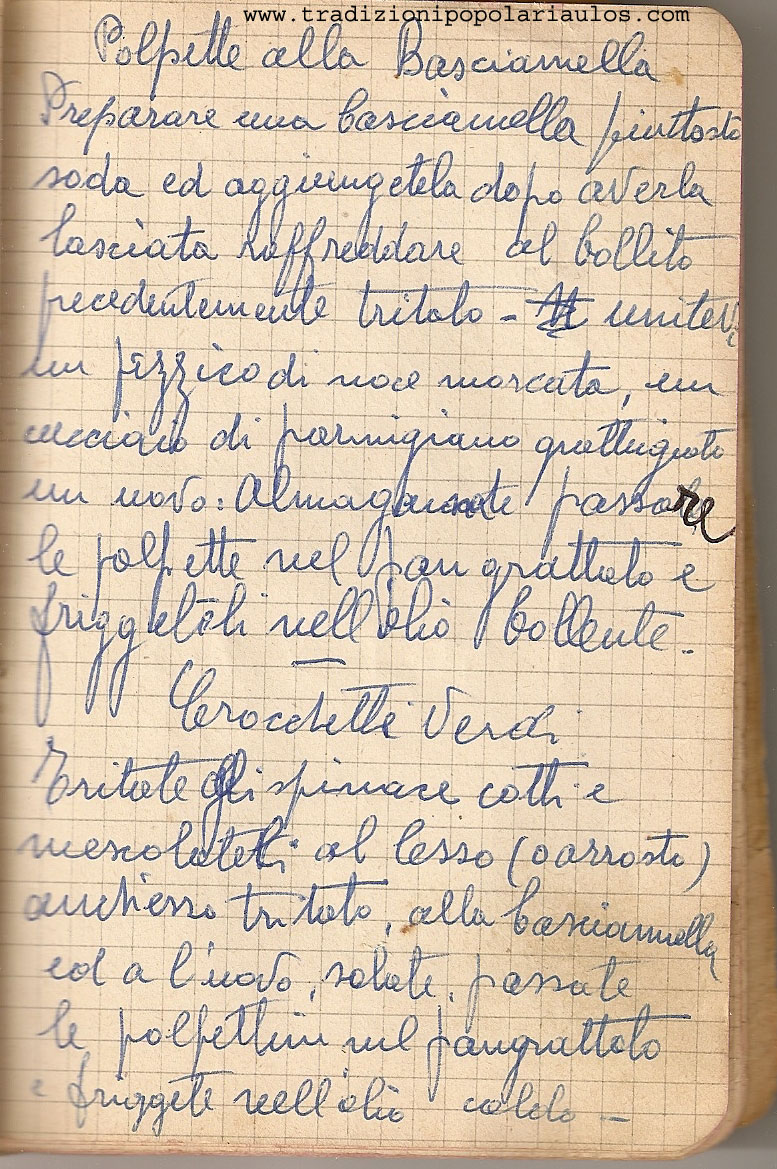 www.tradizionipopolariaulos.com
Polpette alla Basciamella
Preparare una basciamella piuttosto
soda ed aggiungetela dopo averla
lasciata raffreddare al bollito
precedentemente tritato - unitevi
un pezzico di noce moscata, un
cucciaio di parmigiano grattugiato
un uovo: Almagamate passare
le polpette nel pan grattato e
friggeteli nell'olio bollente -
Crocchette Verdi
Tritate gli spinace cotti e
mescolateli al lesso (o arrosto)
anch'esso tritato, alla basciamella
ed a l'uovo, salate, passate
le polpettini nel pangrattato
e friggete nell'olio caldo -